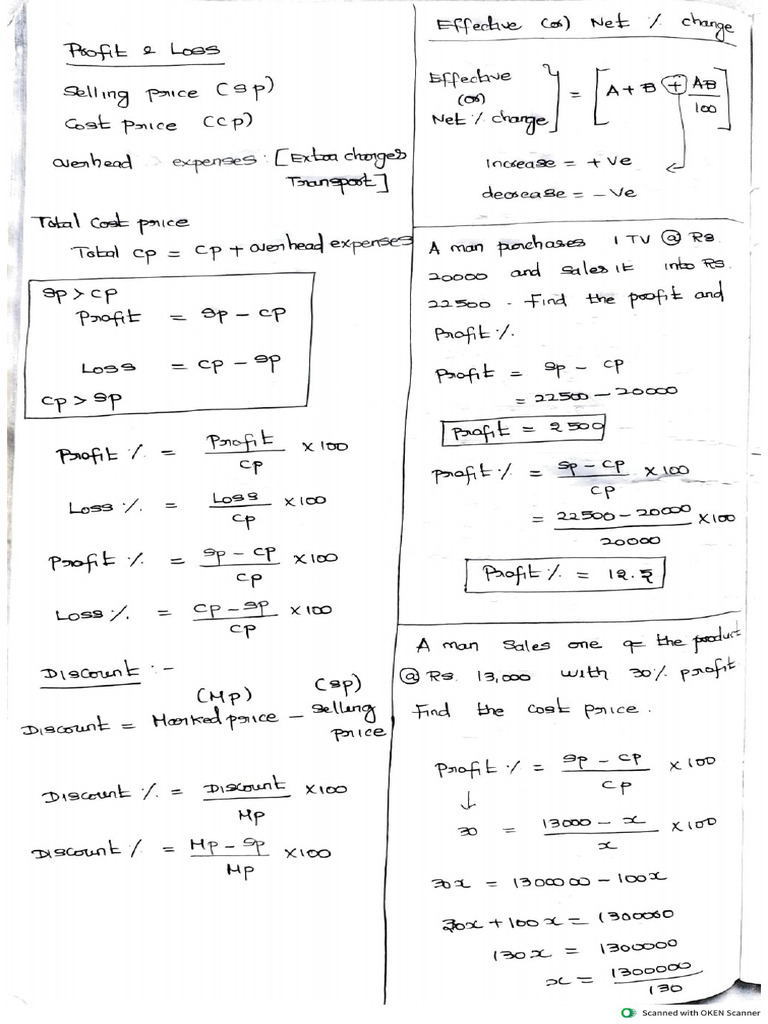 Profit & Loss
Selling price (sp)
Cost price (cp)
overhead expenses: [Extra charges
Transport]
Total cost price
Total cp = cp + overhead expenses
sp > cp
Profit = sp - cp
Loss = cp - sp
cp > sp
Profit % = Profit/cp × 100
Loss % = Loss/cp × 100
Profit % = sp - cp/cp × 100
Loss % = cp - sp/cp × 100
Discount :-
(Mp) (sp)
Discount = Marked price - selling
price
Discount % = Discount/Mp × 100
Discount % = Mp - sp/Mp × 100
Effective (or) Net % change
Effective
(or)
Net % change } = [A + B + AB/100]
increase = +ve
decrease = -ve
A man purchases 1 TV @ Rs.
20000 and sales it into Rs.
22500 - Find the profit and
Profit %.
Profit = sp - cp
= 22500 - 20000
Profit = 2500
Profit % = sp - cp/cp × 100
= 22500 - 20000/20000 × 100
Profit % = 12.5
A man sales one of the product
@ Rs. 13,000 with 30% profit
Find the cost price.
Profit % = sp - cp/cp × 100
↓
30 = 13000 - x/x × 100
30x = 1300000 - 100x
30x + 100x = 1300000
130x = 1300000
x = 1300000/130
Scanned with OKEN Scanner